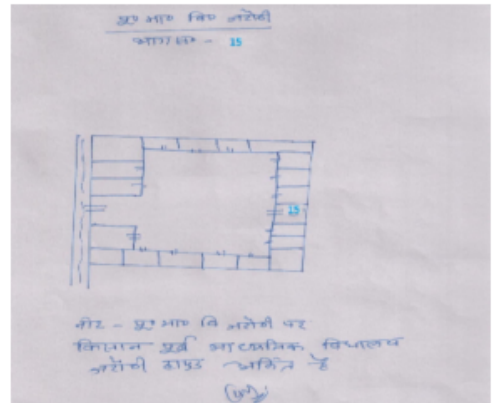 पू० मा० वि० नरौली
भाग सं० - 15
15
नोट - पू० मा० वि नरौली पर
किसान पूर्व माध्यमिक विद्यालय
नरौली अंकित है